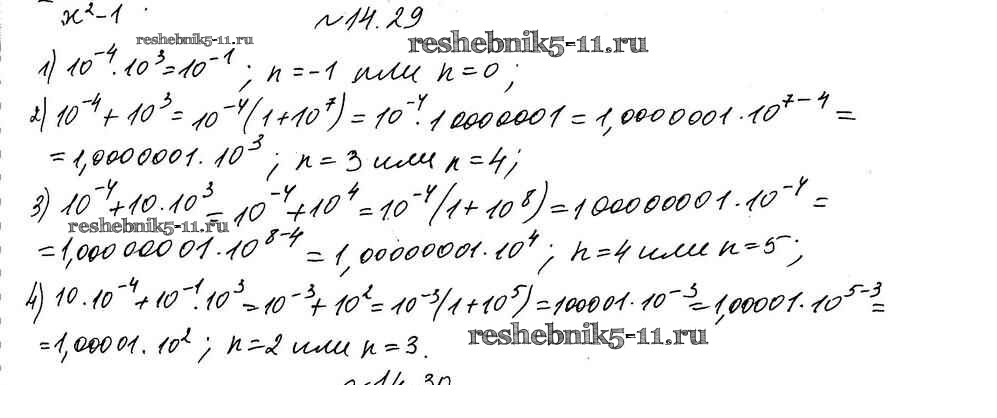 x²-1
№14.29
reshebnik5-11.ru
reshebnik5-11.ru
1) 10⁻⁴·10³=10⁻¹; n=-1 или n=0;
2) 10⁻⁴+10³=10⁻⁴(1+10⁷)=10⁻⁴·10000001=1,0000001·10⁷⁻⁴=
=1,0000001·10³; n=3 или n=4;
3) 10⁻⁴+10·10³=10⁻⁴+10⁴=10⁻⁴(1+10⁸)=100000001·10⁻⁴=
reshebnik5-11.ru
=1,00000001·10⁸⁻⁴=1,00000001·10⁴; n=4 или n=5;
4) 10·10⁻⁴+10⁻¹·10³=10⁻³+10²=10⁻³(1+10⁵)=100001·10⁻³=1,00001·10⁵⁻³=
reshebnik5-11.ru
=1,00001·10²; n=2 или n=3.